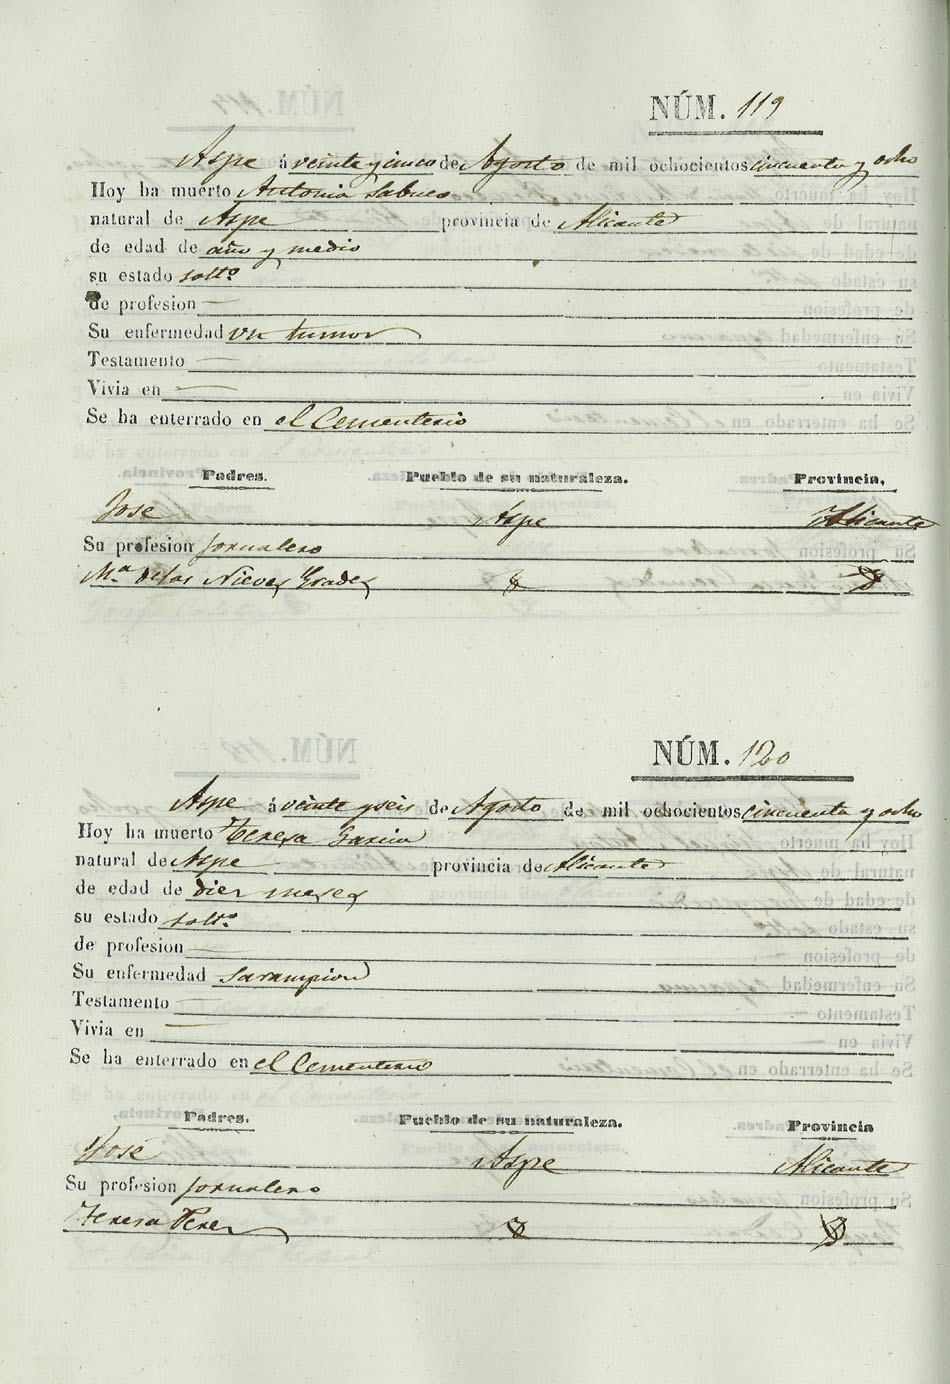 NÚM. 119
Aspe á veinte y cinco de Agosto de mil ochocientos cincuenta y ocho
Hoy ha muerto Antonia Sabuco
natural de Aspe provincia de Alicante
de edad de año y medio
su estado solt.º
de profesion —
Su enfermedad un tumor
Testamento —
Vivia en —
Se ha enterrado en el Cementerio
Padres. Pueblo de su naturaleza. Provincia.
José Aspe Alicante
Su profesion Jornalero
M.ª de las Nieves
NÚM. 120
Aspe á veinte y seis de Agosto de mil ochocientos cincuenta y ocho
Hoy ha muerto Teresa Garcia
natural de Aspe provincia de Alicante
de edad de diez meses
su estado solt.º
de profesion —
Su enfermedad sarampion
Testamento —
Vivia en —
Se ha enterrado en el Cementerio
Padres. Pueblo de su naturaleza. Provincia
José Aspe Alicante
Su profesion Jornalero
Teresa Perez